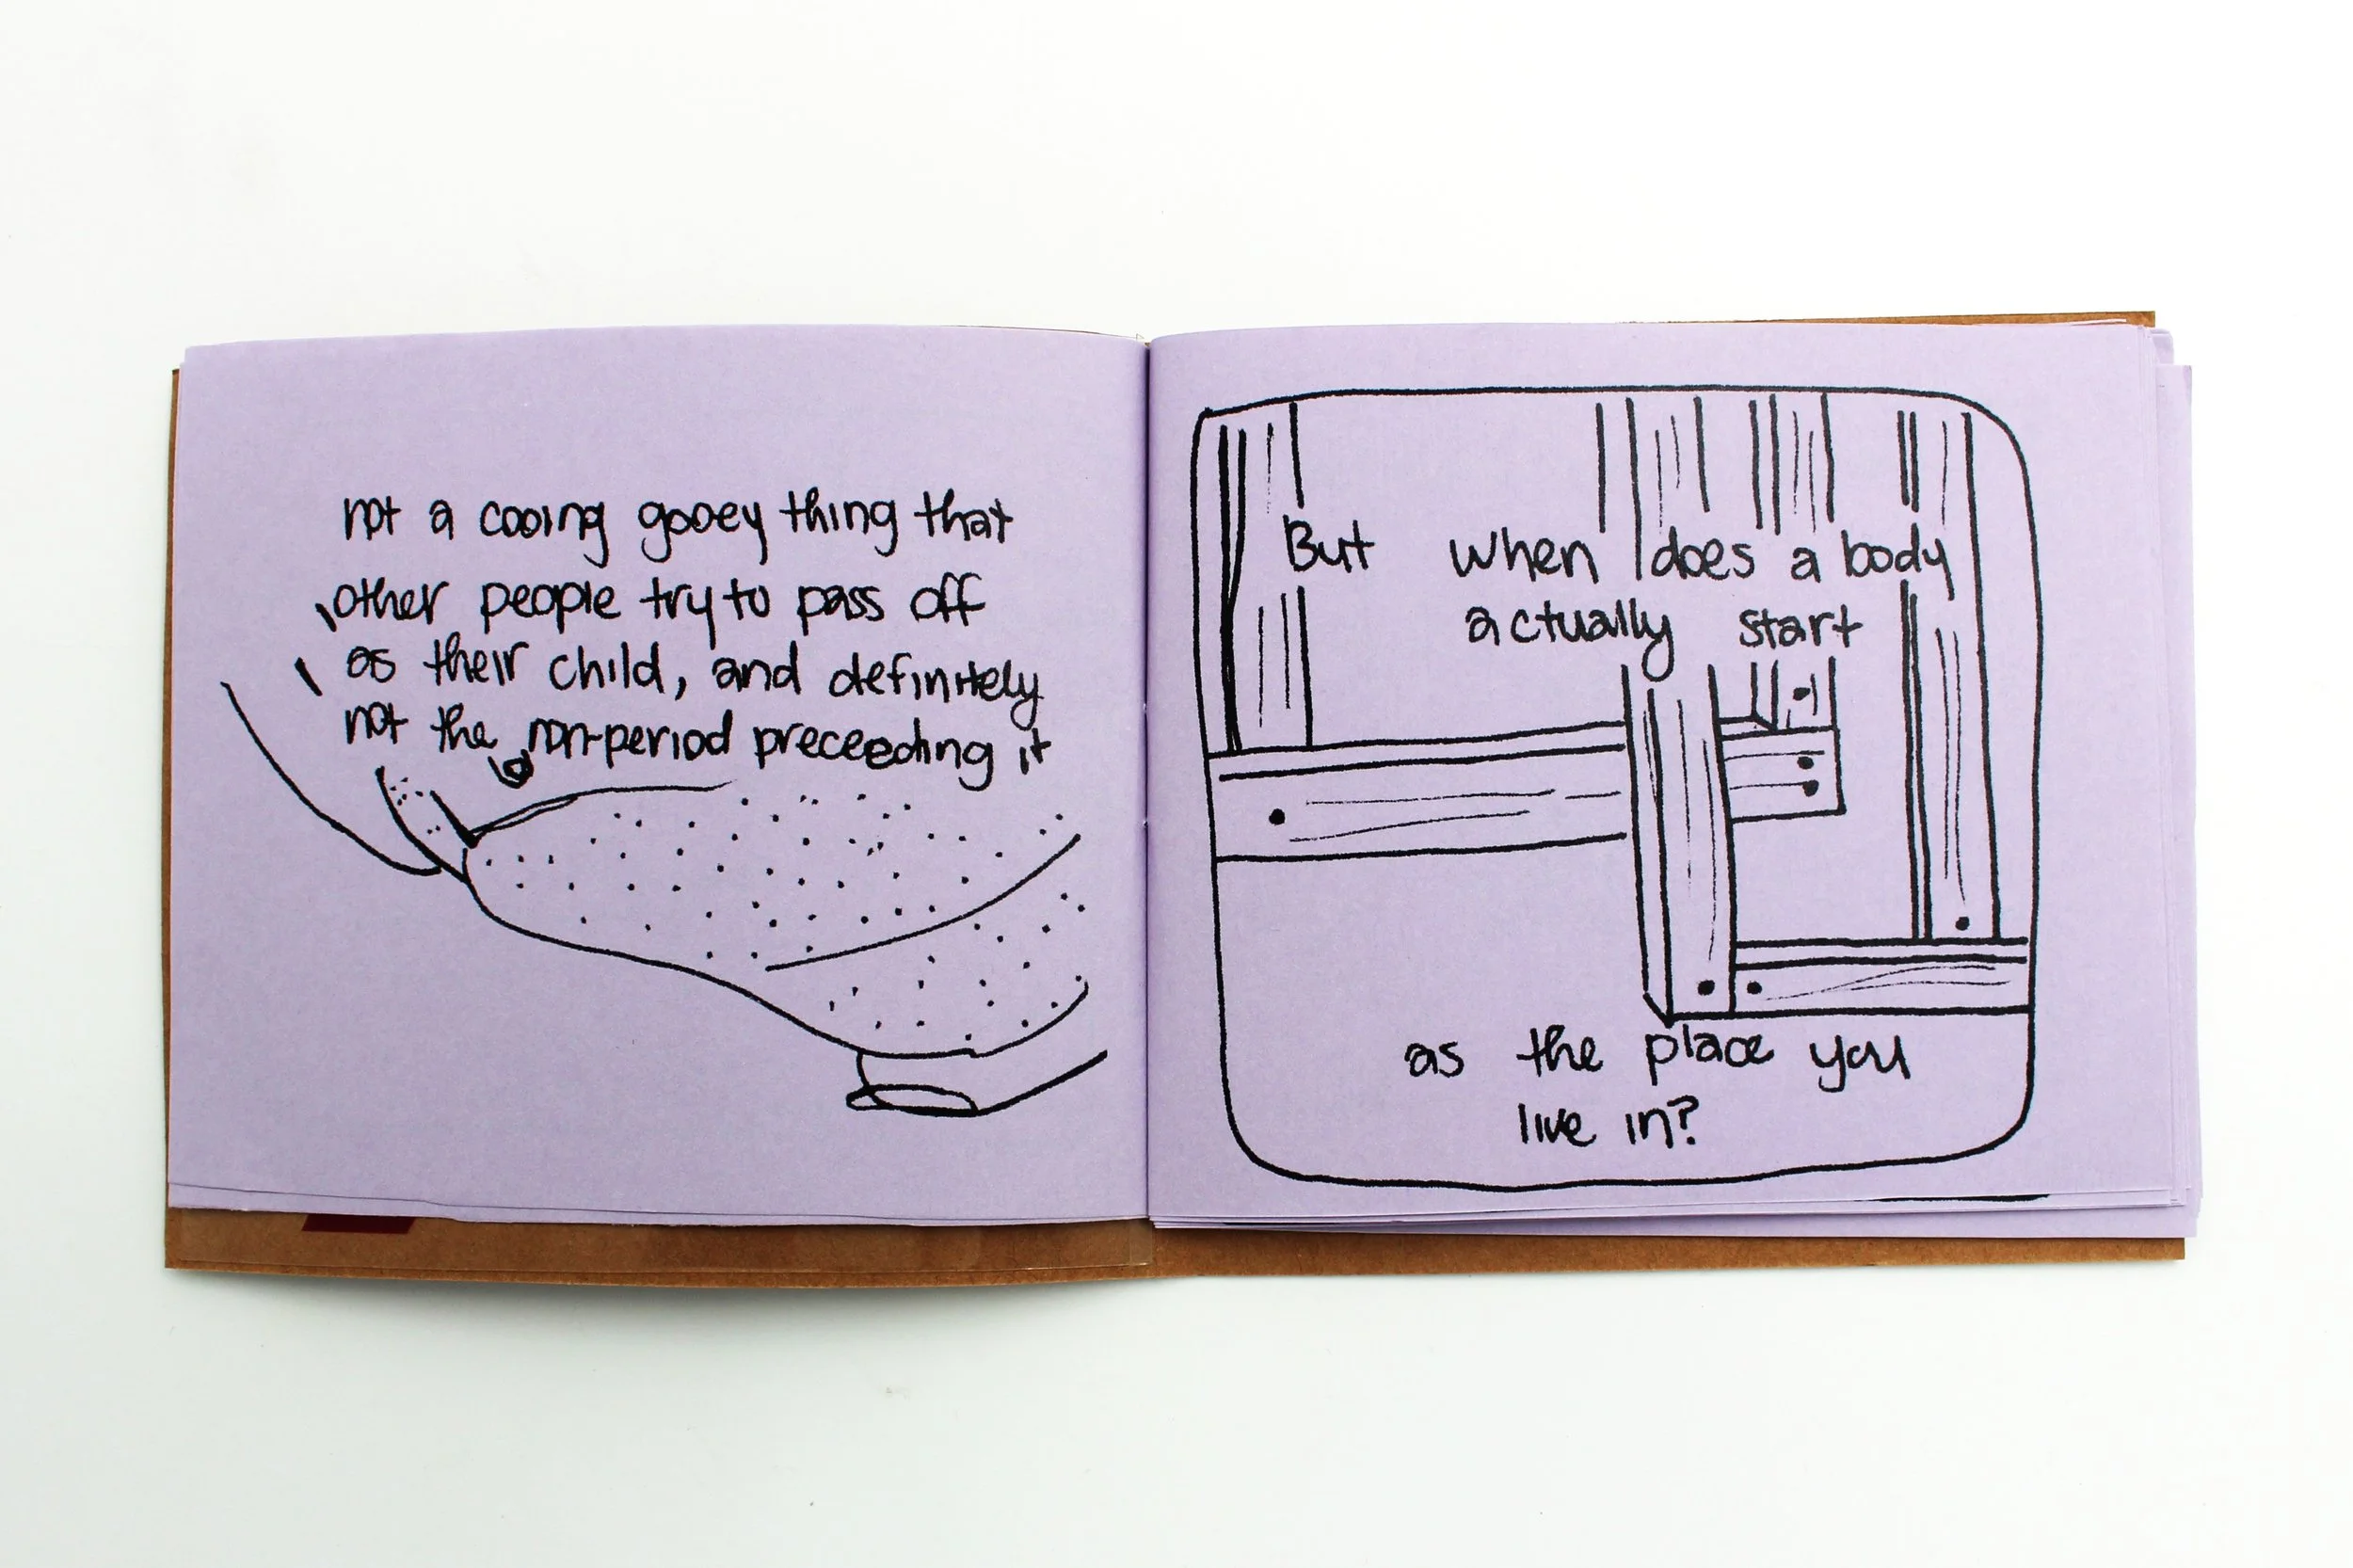 not a cooing gooey thing that
other people try to pass off
as their child, and definitely
not the non-period preceeding it
But when does a body
actually start
as the place you
live in?